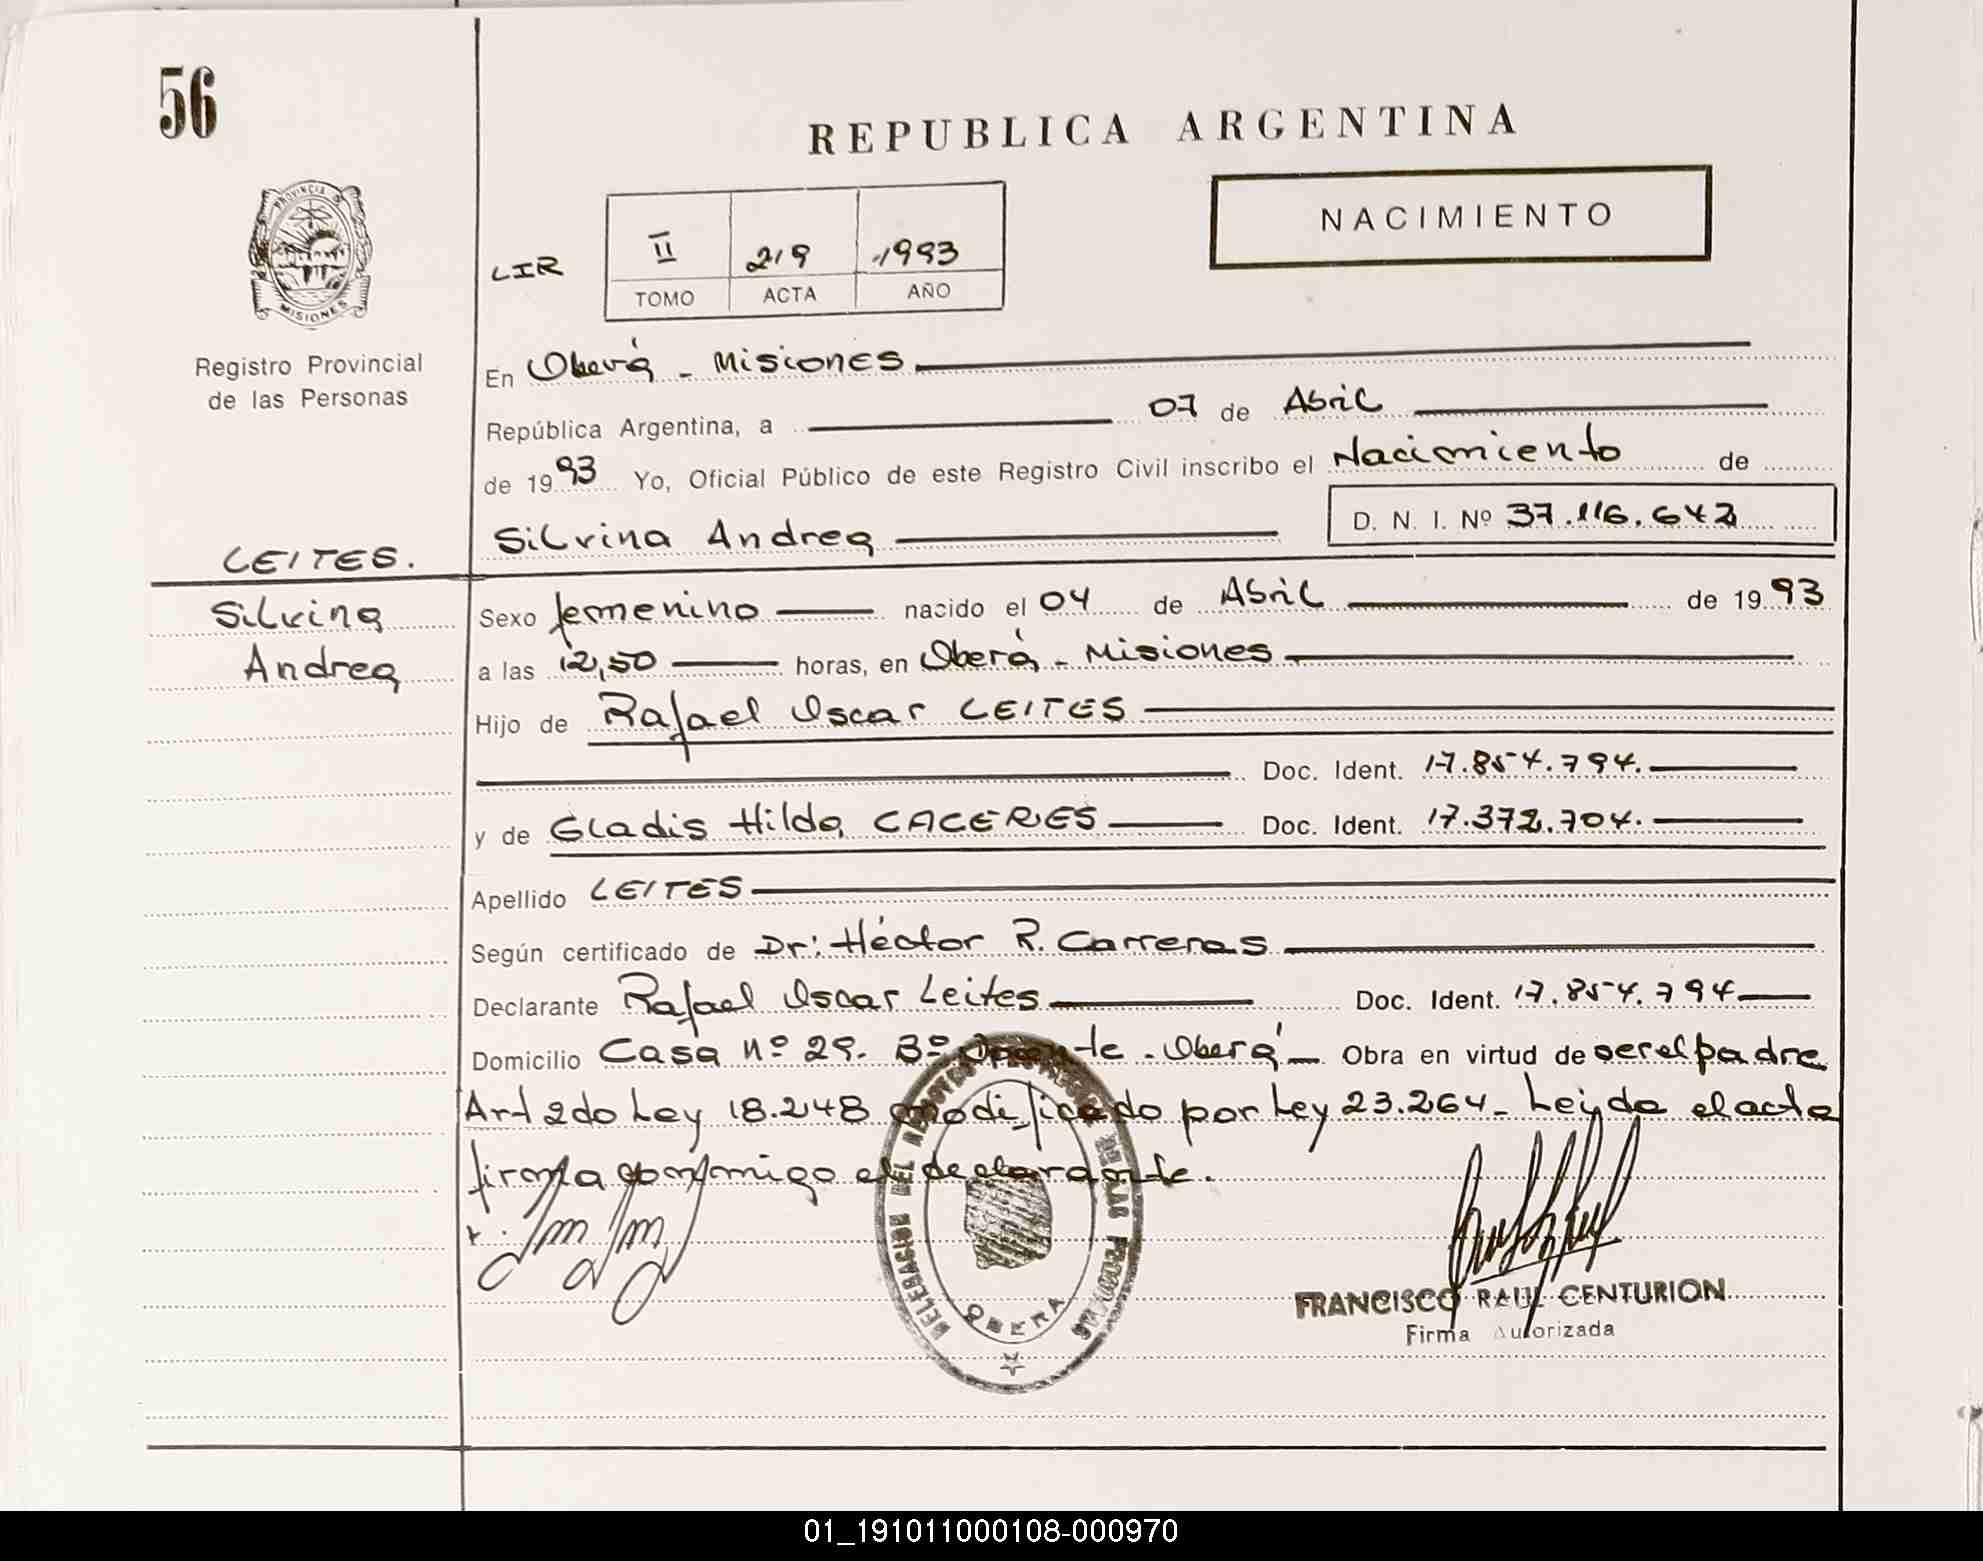 56
REPUBLICA ARGENTINA
PROVINCIA
MISIONES
NACIMIENTO
LIR
II 219 1993
TOMO ACTA AÑO
Registro Provincial
de las Personas
En Oberá - Misiones
República Argentina, a 07 de Abril
de 1993 Yo, Oficial Público de este Registro Civil inscribo el Nacimiento de
Silvina Andrea D. N. I. Nº 37.116.642
LEITES.
Silvina
Andrea
Sexo femenino nacido el 04 de Abril de 1993
a las 12,50 horas, en Oberá - Misiones
Hijo de Rafael Oscar LEITES
Doc. Ident. 17.854.794.
y de Gladis Hilda CACERES Doc. Ident. 17.372.704.
Apellido LEITES
Según certificado de Dr: Héctor R. Carreras
Declarante Rafael Oscar Leites Doc. Ident. 17.854.794
Domicilio Casa Nº 29. Bº Oberá Obra en virtud de ser el padre
Art 2do Ley 18.248 modificado por Ley 23.264 - Leida el acta
firma conmigo el declarante.
DELEGACION DEL REGISTRO PROVINCIAL DE LAS PERSONAS
OBERA
FRANCISCO RAUL CENTURION
Firma Autorizada
01_191011000108-000970